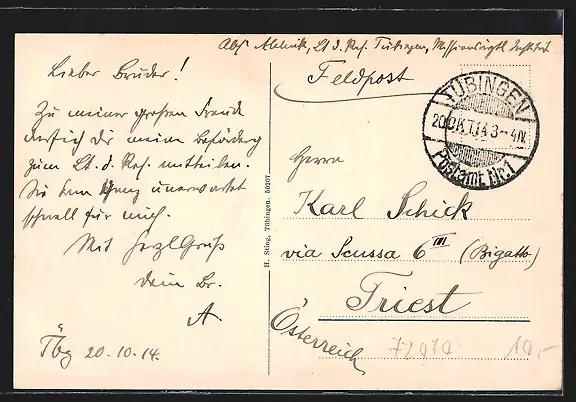 Abs. Aleknik, Lt d. Res. Tübingen, Missionsärztl. Institut
Feldpost
TÜBINGEN
20.OKT.14 3-4N.
Postamt Nr.1
Lieber Bruder!
Zu meiner großen Freude
darf ich dir meine Beförderg
zum Lt. d. Res. mitteilen.
Sie kam ganz unerwartet
schnell für mich.
Mit herzl Gruß
dein Br.
A.
Tbg 20.10.14.
H. Sting, Tübingen. 50207
Herrn
Karl Schick
via Scussa 6 III (Bigatto)
Triest
Österreich
72010
10,-